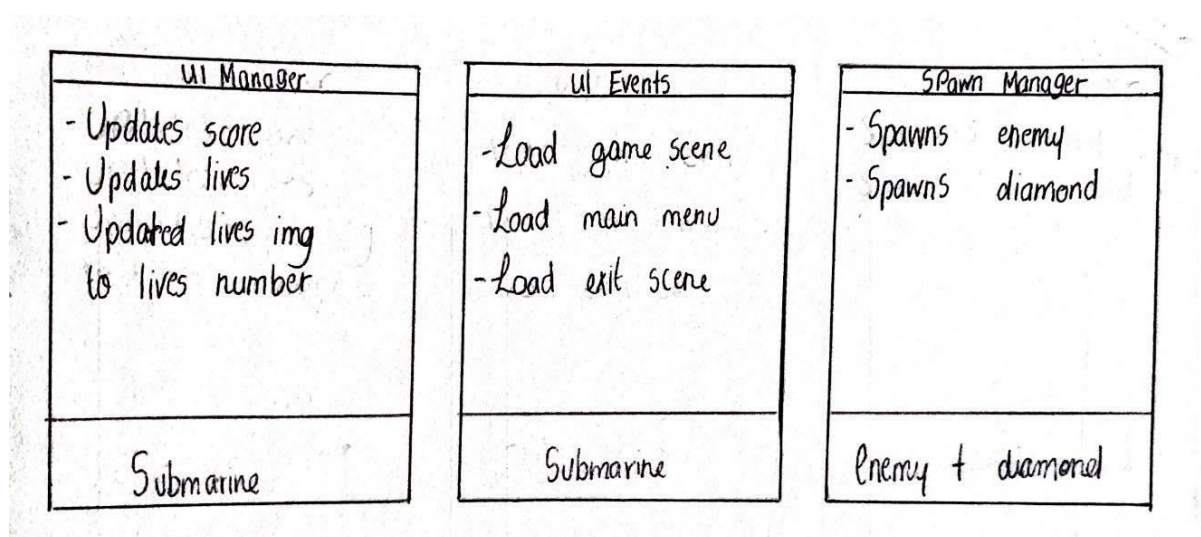 UI Manager
- Updates score
- Updates lives
- Updated lives img
to lives number
Submarine
UI Events
- Load game scene
- Load main menu
- Load exit scene
Submarine
Spawn Manager
- Spawns enemy
- Spawns diamond
enemy + diamond